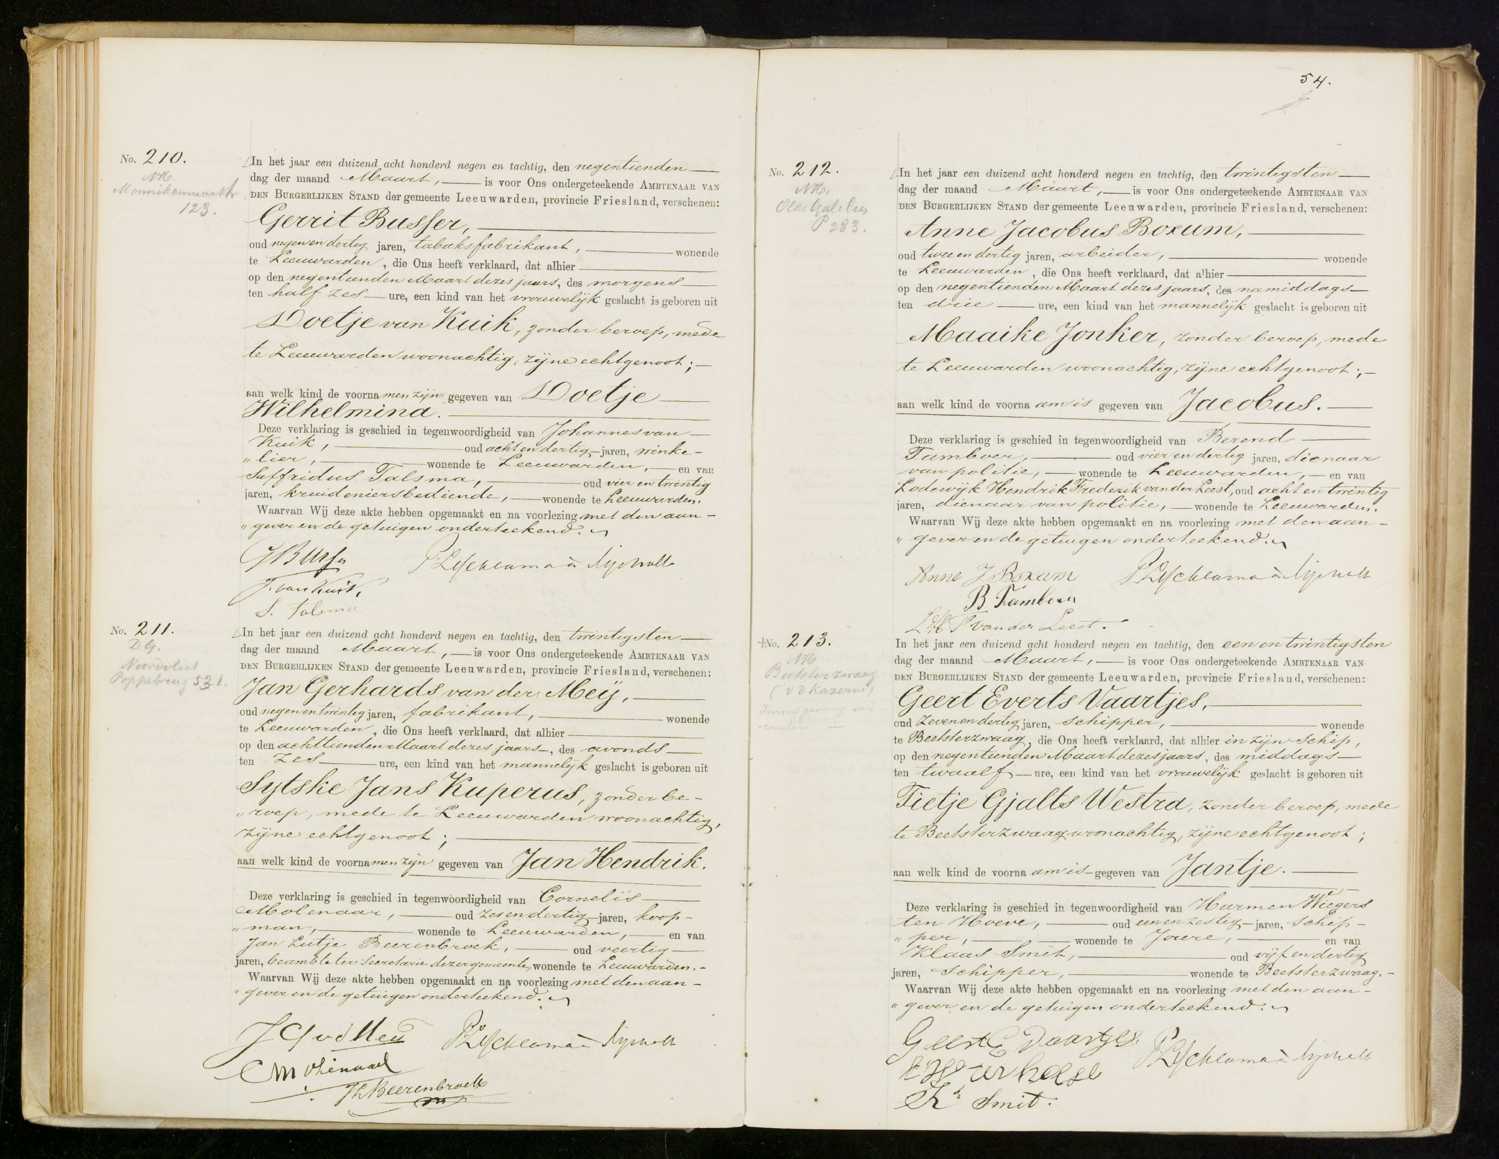 No. 210.
NH.
123.
In het jaar een duizend acht honderd negen en tachtig, den negentienden
dag der maand Maart, is voor Ons ondergeteekende AMBTENAAR VAN
DEN BURGERLIJKEN STAND der gemeente Leeuwarden, provincie Friesland, verschenen:
Gerrit Busser,
oud negen en dertig jaren, tabaksfabrikant, wonende
te Leeuwarden, die Ons heeft verklaard, dat alhier
op den negentienden Maart dezes jaars, des morgens
ten half zes ure, een kind van het vrouwelijk geslacht is geboren uit
Doetje van Kuik, zonder beroep, mede
te Leeuwarden woonachtig, zijne echtgenoot;
aan welk kind de voornamen zijn gegeven van Doetje
Wilhelmina.
Deze verklaring is geschied in tegenwoordigheid van Johannes van
Kuik, oud acht en dertig jaren, winke-
„lier, wonende te Leeuwarden, en van
Suffridus Talsma, oud vier en twintig
jaren, kruideniersbediende, wonende te Leeuwarden.
Waarvan Wij deze akte hebben opgemaakt en na voorlezing met den aan-
„gever en de getuigen onderteekend.
G Busser
J. van Kuik
S. Talsma
No. 211.
D.G.
Poppebrug 531.
In het jaar een duizend acht honderd negen en tachtig, den twintigsten
dag der maand Maart, is voor Ons ondergeteekende AMBTENAAR VAN
DEN BURGERLIJKEN STAND der gemeente Leeuwarden, provincie Friesland, verschenen:
Jan Gerhards van der Meij,
oud negen en twintig jaren, fabrikant, wonende
te Leeuwarden, die Ons heeft verklaard, dat alhier
op den achttienden Maart dezes jaars, des avonds
ten zes ure, een kind van het mannelijk geslacht is geboren uit
Sytske Jans Kuperus, zonder be-
„roep, mede te Leeuwarden woonachtig,
zijne echtgenoot;
aan welk kind de voornamen zijn gegeven van Jan Hendrik.
Deze verklaring is geschied in tegenwoordigheid van Cornelis
Molenaar, oud zes en dertig jaren, koop-
„man, wonende te Leeuwarden, en van
Jan Lutje Beerenbroek, oud veertig
jaren, beambte ter Secretarie dezer gemeente, wonende te Leeuwarden.
Waarvan Wij deze akte hebben opgemaakt en na voorlezing met den aan-
„gever en de getuigen onderteekend.
J G vd Meij
C Molenaar
Beerenbroek
54.
No. 212.
NH.
P 283.
In het jaar een duizend acht honderd negen en tachtig, den twintigsten
dag der maand Maart, is voor Ons ondergeteekende AMBTENAAR VAN
DEN BURGERLIJKEN STAND der gemeente Leeuwarden, provincie Friesland, verschenen:
Anne Jacobus Boxum,
oud twee en dertig jaren, arbeider, wonende
te Leeuwarden, die Ons heeft verklaard, dat alhier
op den negentienden Maart dezes jaars, des namiddags
ten drie ure, een kind van het mannelijk geslacht is geboren uit
Maaike Jonker, zonder beroep, mede
te Leeuwarden woonachtig, zijne echtgenoot;
aan welk kind de voornaam is gegeven van Jacobus.
Deze verklaring is geschied in tegenwoordigheid van Berend
Tamboer, oud vier en dertig jaren, dienaar
van politie, wonende te Leeuwarden, en van
Lodewijk Hendrik Frederik van der Leest, oud acht en twintig
jaren, dienaar van politie, wonende te Leeuwarden.
Waarvan Wij deze akte hebben opgemaakt en na voorlezing met den aan-
„gever en de getuigen onderteekend.
Anne J Boxum
B. Tamboer
L H F van der Leest.
No. 213.
NH
Beetsterzwaag
In het jaar een duizend acht honderd negen en tachtig, den een en twintigsten
dag der maand Maart, is voor Ons ondergeteekende AMBTENAAR VAN
DEN BURGERLIJKEN STAND der gemeente Leeuwarden, provincie Friesland, verschenen:
Geert Everts Vaartjes,
oud zeven en dertig jaren, schipper, wonende
te Beetsterzwaag, die Ons heeft verklaard, dat alhier in zijn schip,
op den negentienden Maart dezes jaars, des middags
ten twaalf ure, een kind van het vrouwelijk geslacht is geboren uit
Tietje Gjalts Westra, zonder beroep, mede
te Beetsterzwaag woonachtig, zijne echtgenoot;
aan welk kind de voornaam is gegeven van Jantje.
Deze verklaring is geschied in tegenwoordigheid van Harmen Wiegers
ten Hoeve, oud een en zestig jaren, schip-
„per, wonende te Joure, en van
Klaas Smit, oud vijf en dertig
jaren, schipper, wonende te Beetsterzwaag.
Waarvan Wij deze akte hebben opgemaakt en na voorlezing met den aan-
„gever en de getuigen onderteekend.
Geert E Vaartjes
K. Smit.